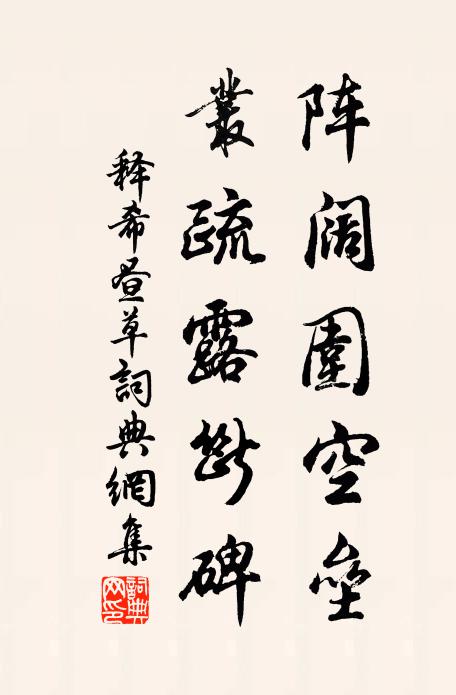 阵阔围空垒
丛疏露断碑
释希昼草詞典網集
詞典网印